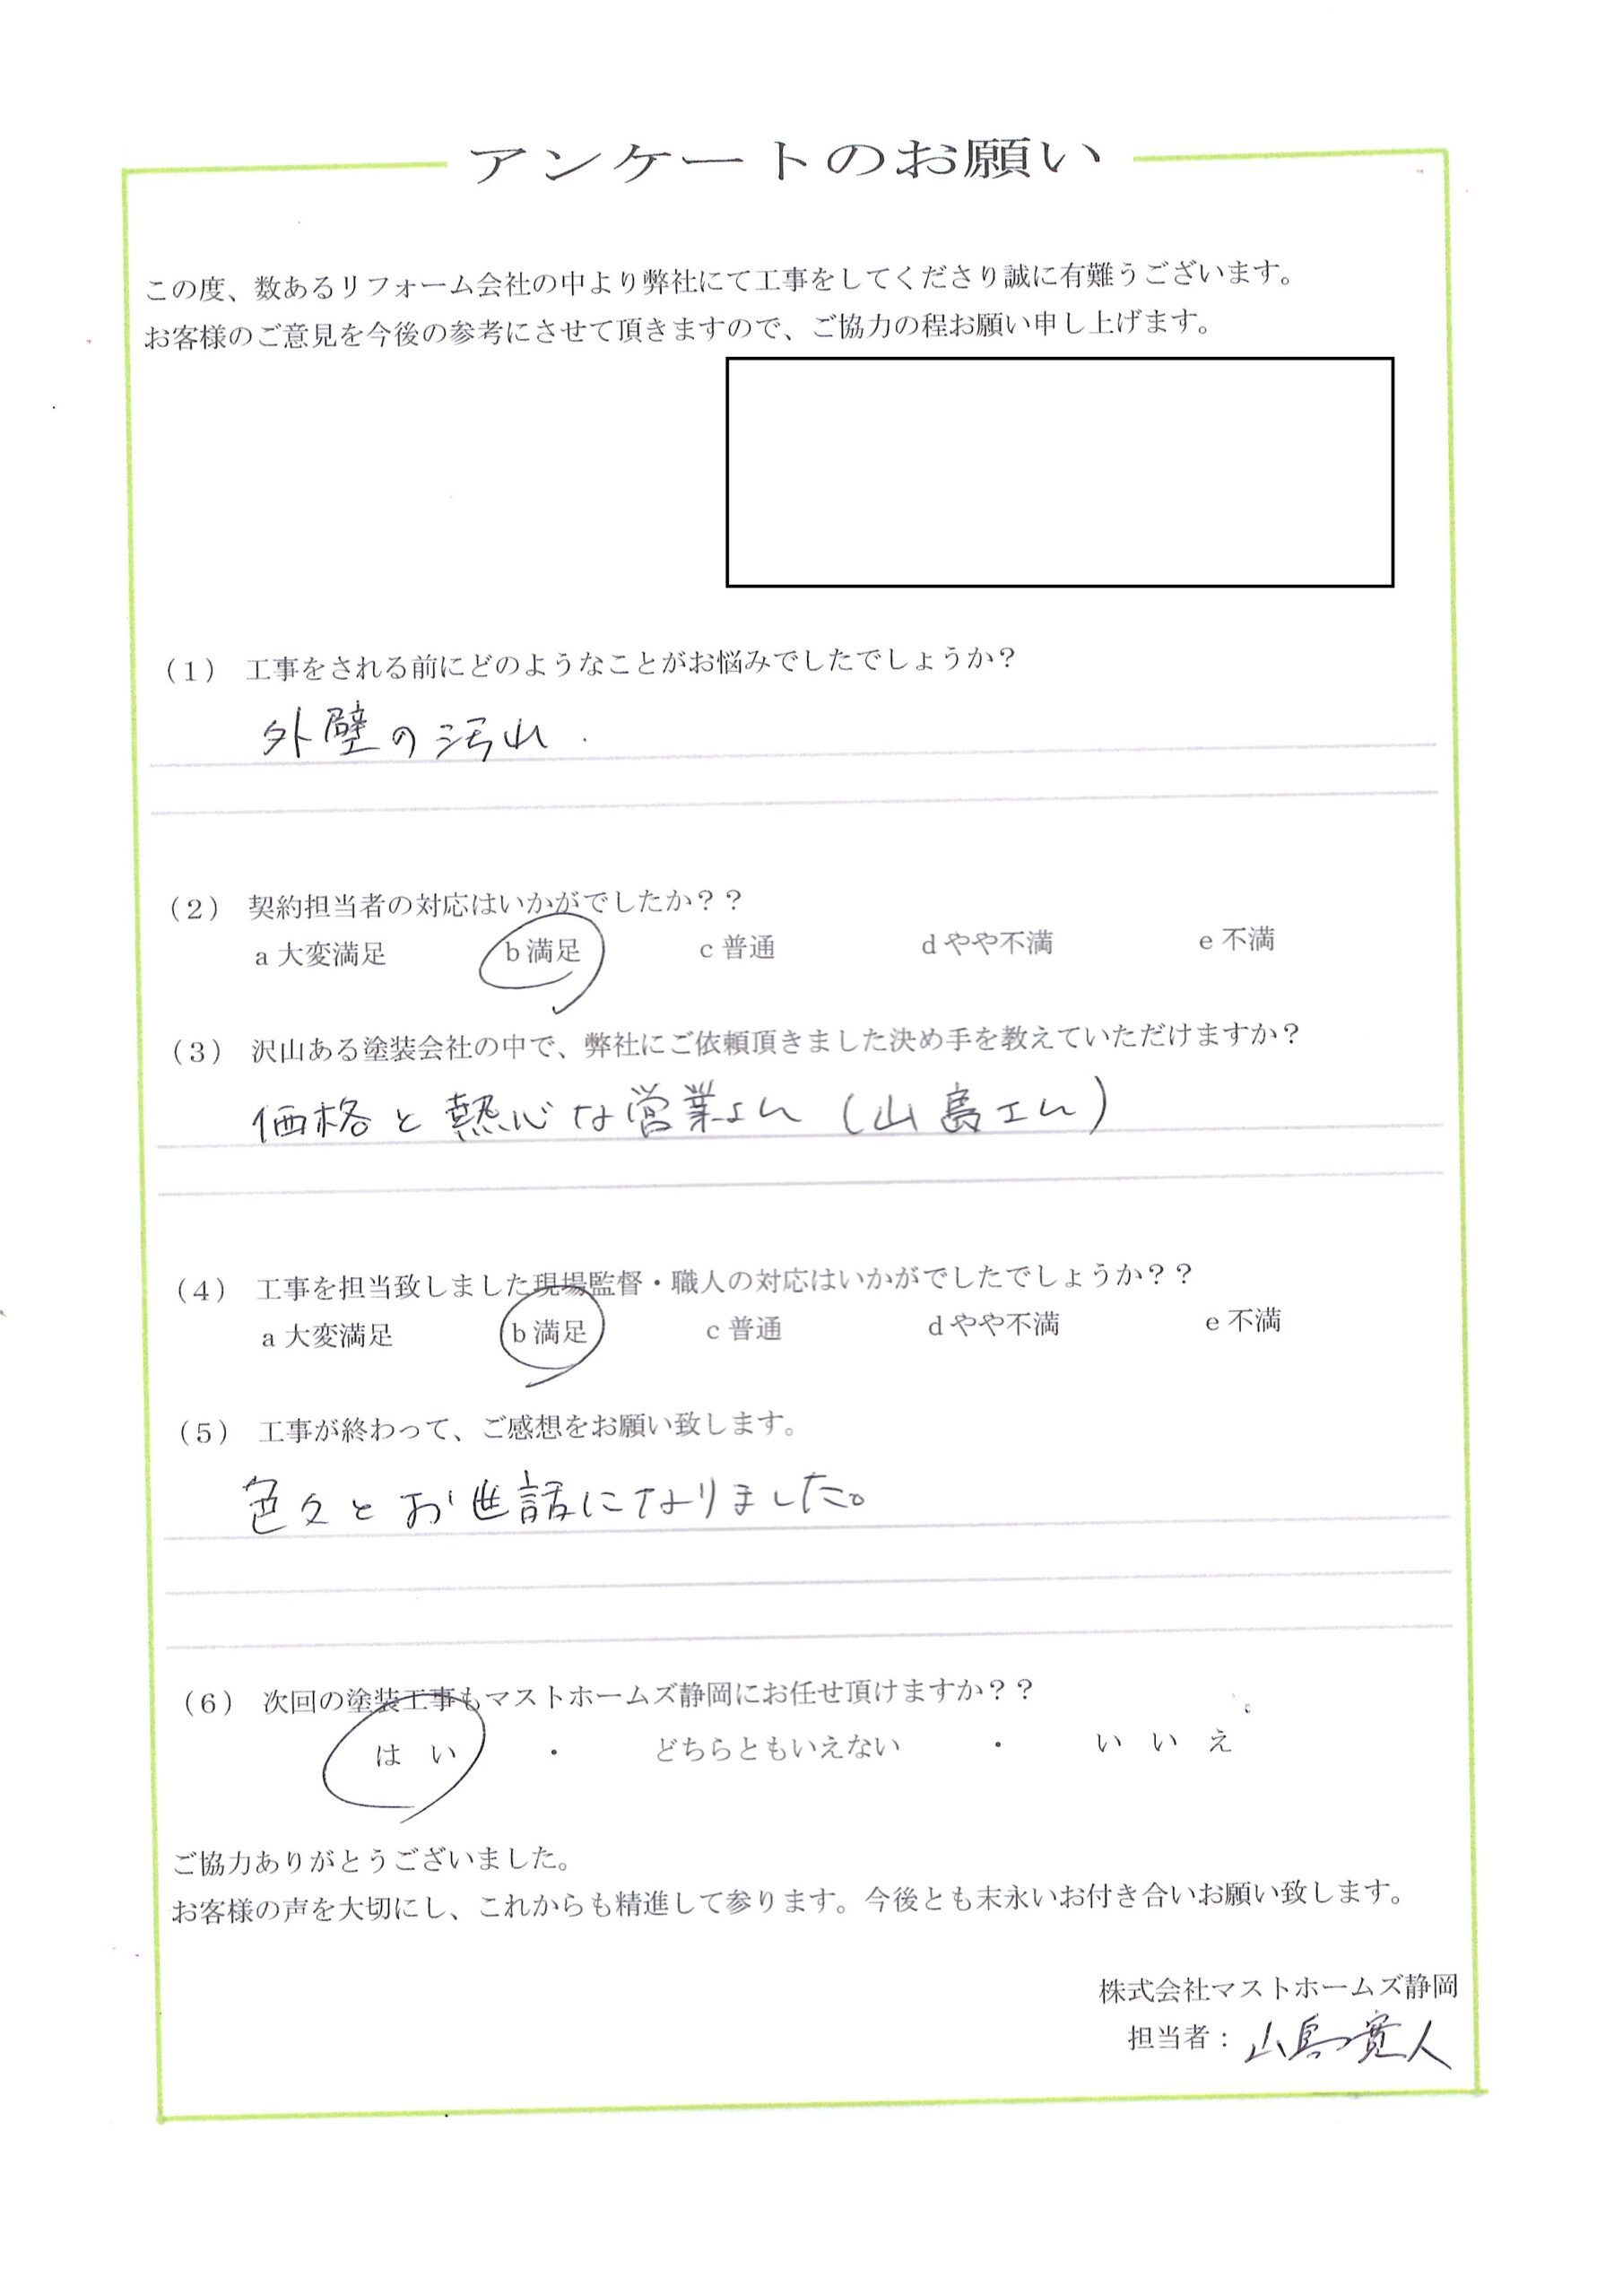 アンケートのお願い
この度、数あるリフォーム会社の中より弊社にて工事をしてくださり誠に有難うございます。
お客様のご意見を今後の参考にさせて頂きますので、ご協力の程お願い申し上げます。
（1） 工事をされる前にどのようなことがお悩みでしたでしょうか？
外壁の汚れ.
（2） 契約担当者の対応はいかがでしたか？？
a 大変満足 b 満足 c 普通 d やや不満 e 不満
（3） 沢山ある塗装会社の中で、弊社にご依頼頂きました決め手を教えていただけますか？
価格と熱心な営業さん（山島さん）
（4） 工事を担当致しました現場監督・職人の対応はいかがでしたでしょうか？？
a 大変満足 b 満足 c 普通 d やや不満 e 不満
（5） 工事が終わって、ご感想をお願い致します。
色々とお世話になりました。
（6） 次回の塗装工事もマストホームズ静岡にお任せ頂けますか？？
はい ・ どちらともいえない ・ いいえ
ご協力ありがとうございました。
お客様の声を大切にし、これからも精進して参ります。今後とも末永いお付き合いお願い致します。
株式会社マストホームズ静岡
担当者：山島寛人